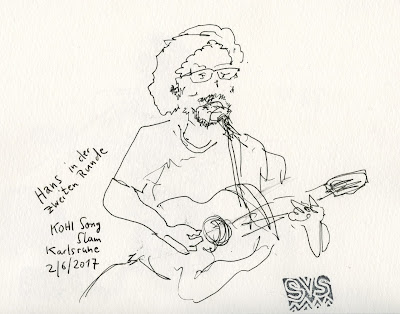 Hans in der
zweiten Runde
KOHI Song
Slam
Karlsruhe
2/6/2017
SVS